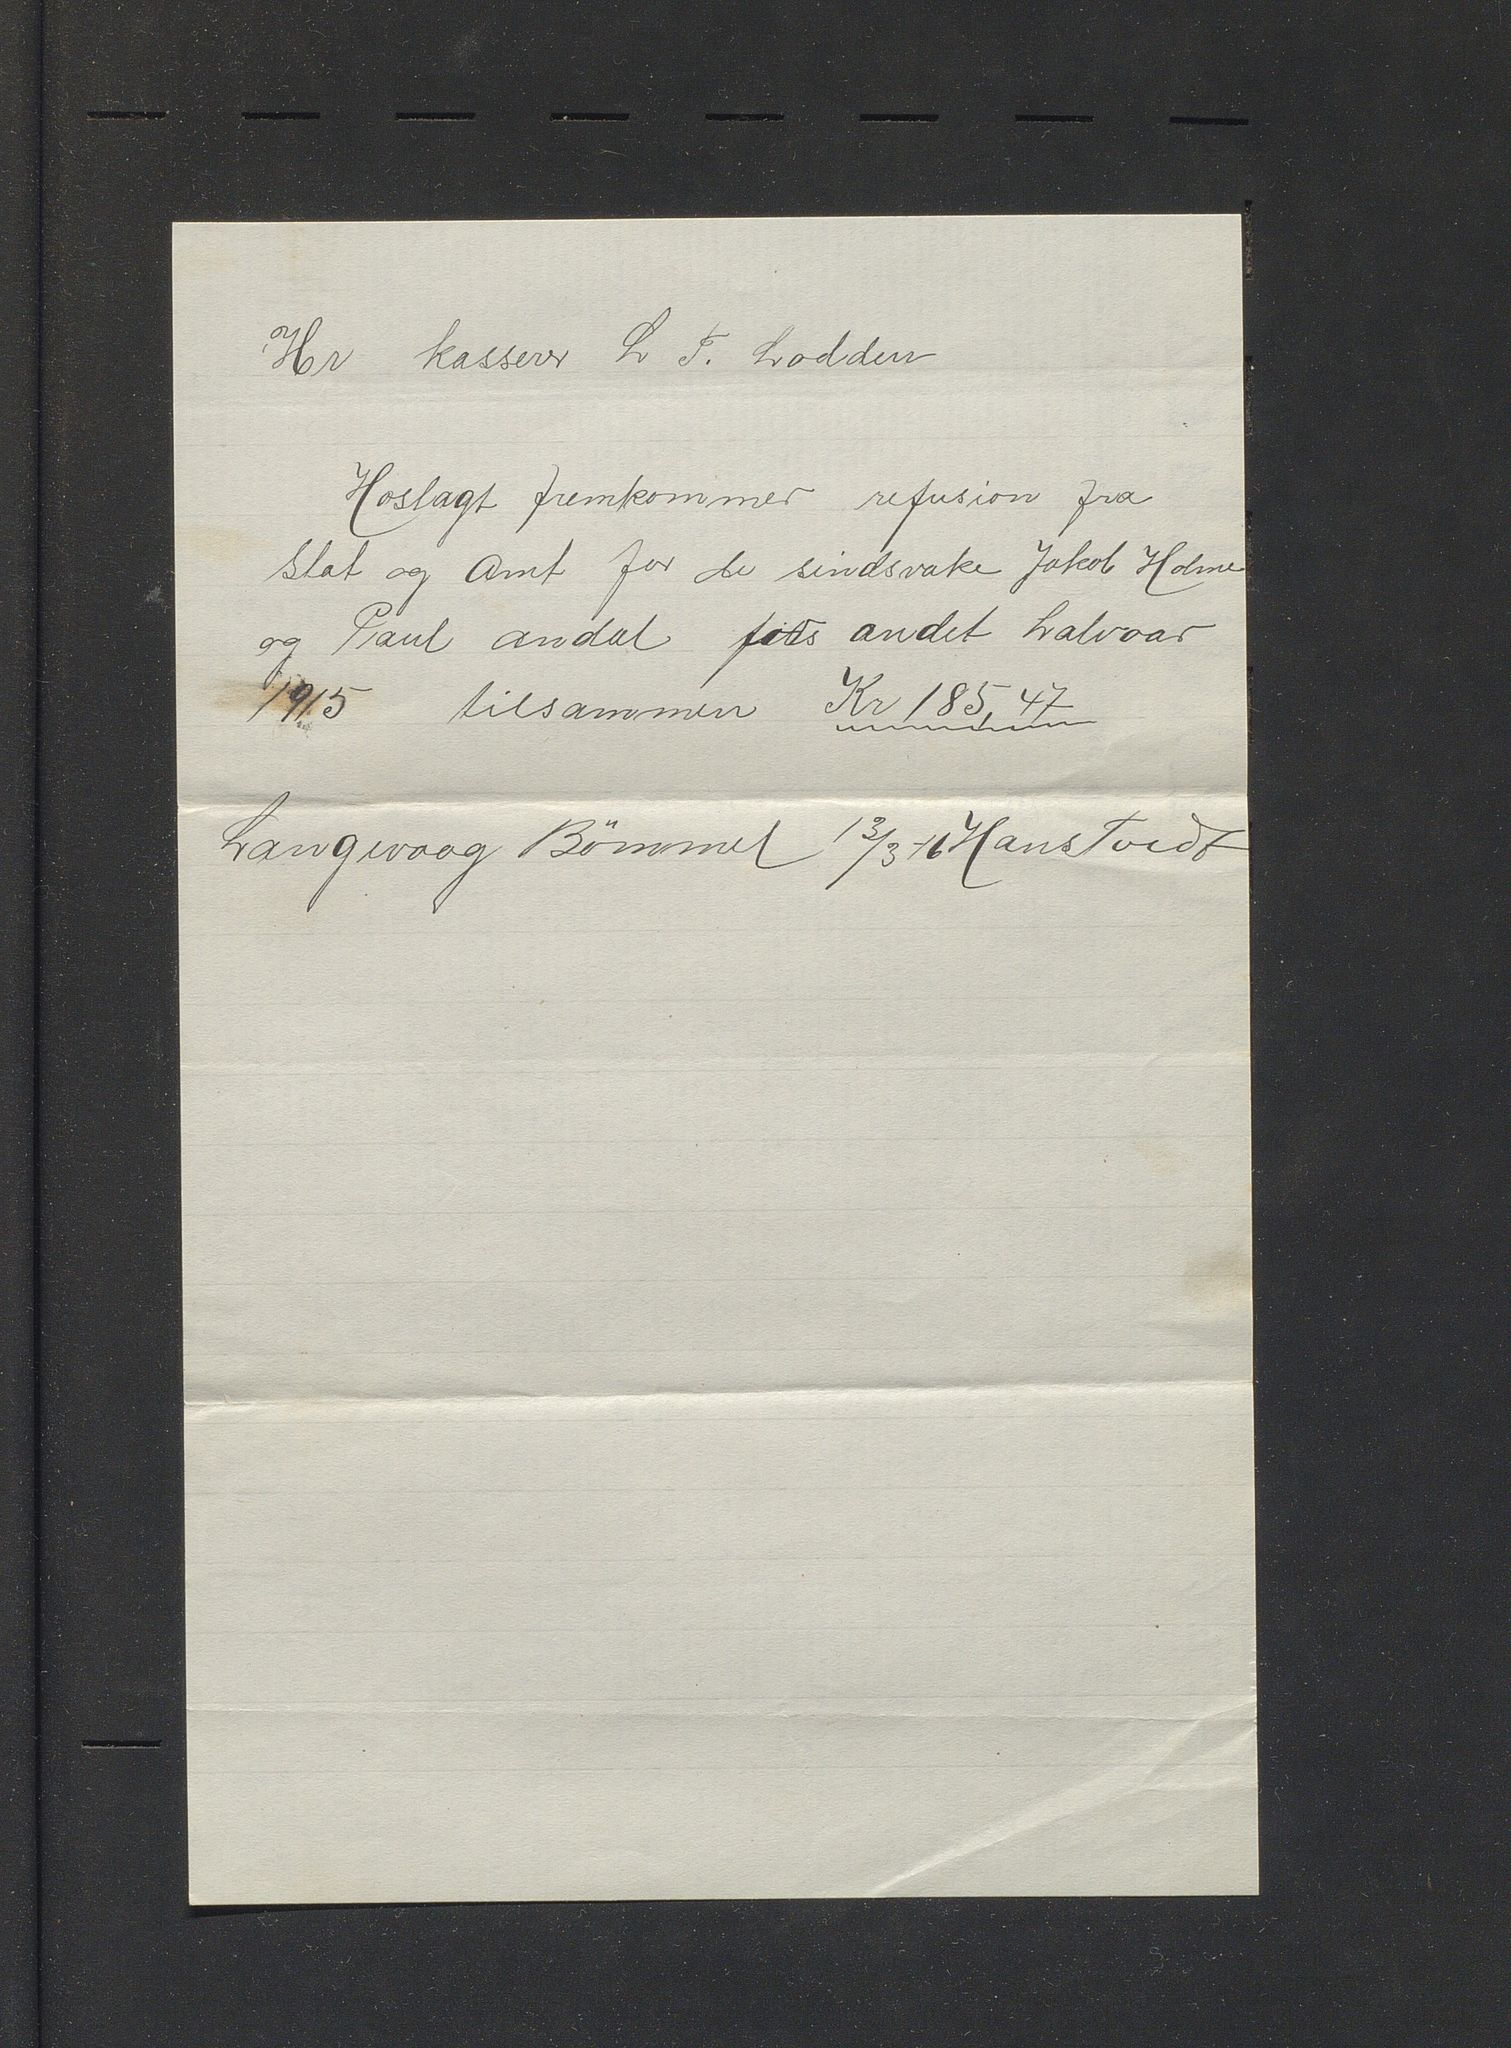 Hr kasserer L T. Lodden
Hoslagt fremkommer refusion fra
Stat og Amt for de sindsvake Jakob Holme
og Paul andal andet halvaar
1915 tilsammen Kr 185,47
Langevaag Bömmel 13/3-16 Hans Tvedt